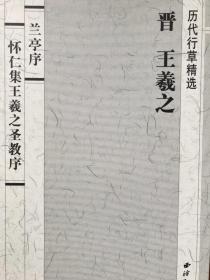 历代行草精选
晋 王羲之
兰亭序
怀仁集王羲之圣教序